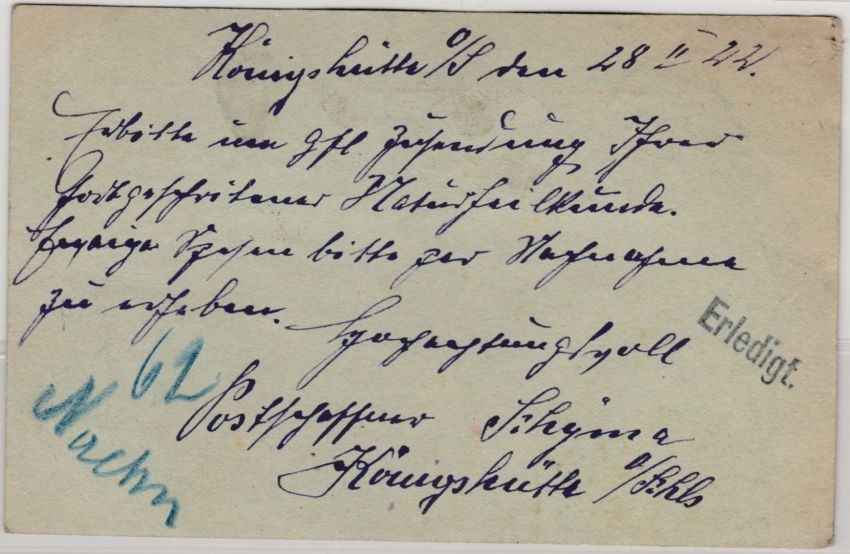 Königshütte O/S den 28 II 22.
Erbitte um gfl. Zusendung Ihrer
fortgeschritener Naturheilkunde.
Etwaige Spesen bitte per Nachnahme
zu erheben.
Hochachtungsvoll
Erledigt.
62
Nachn
Postschaffner
Königshütte O/Schls